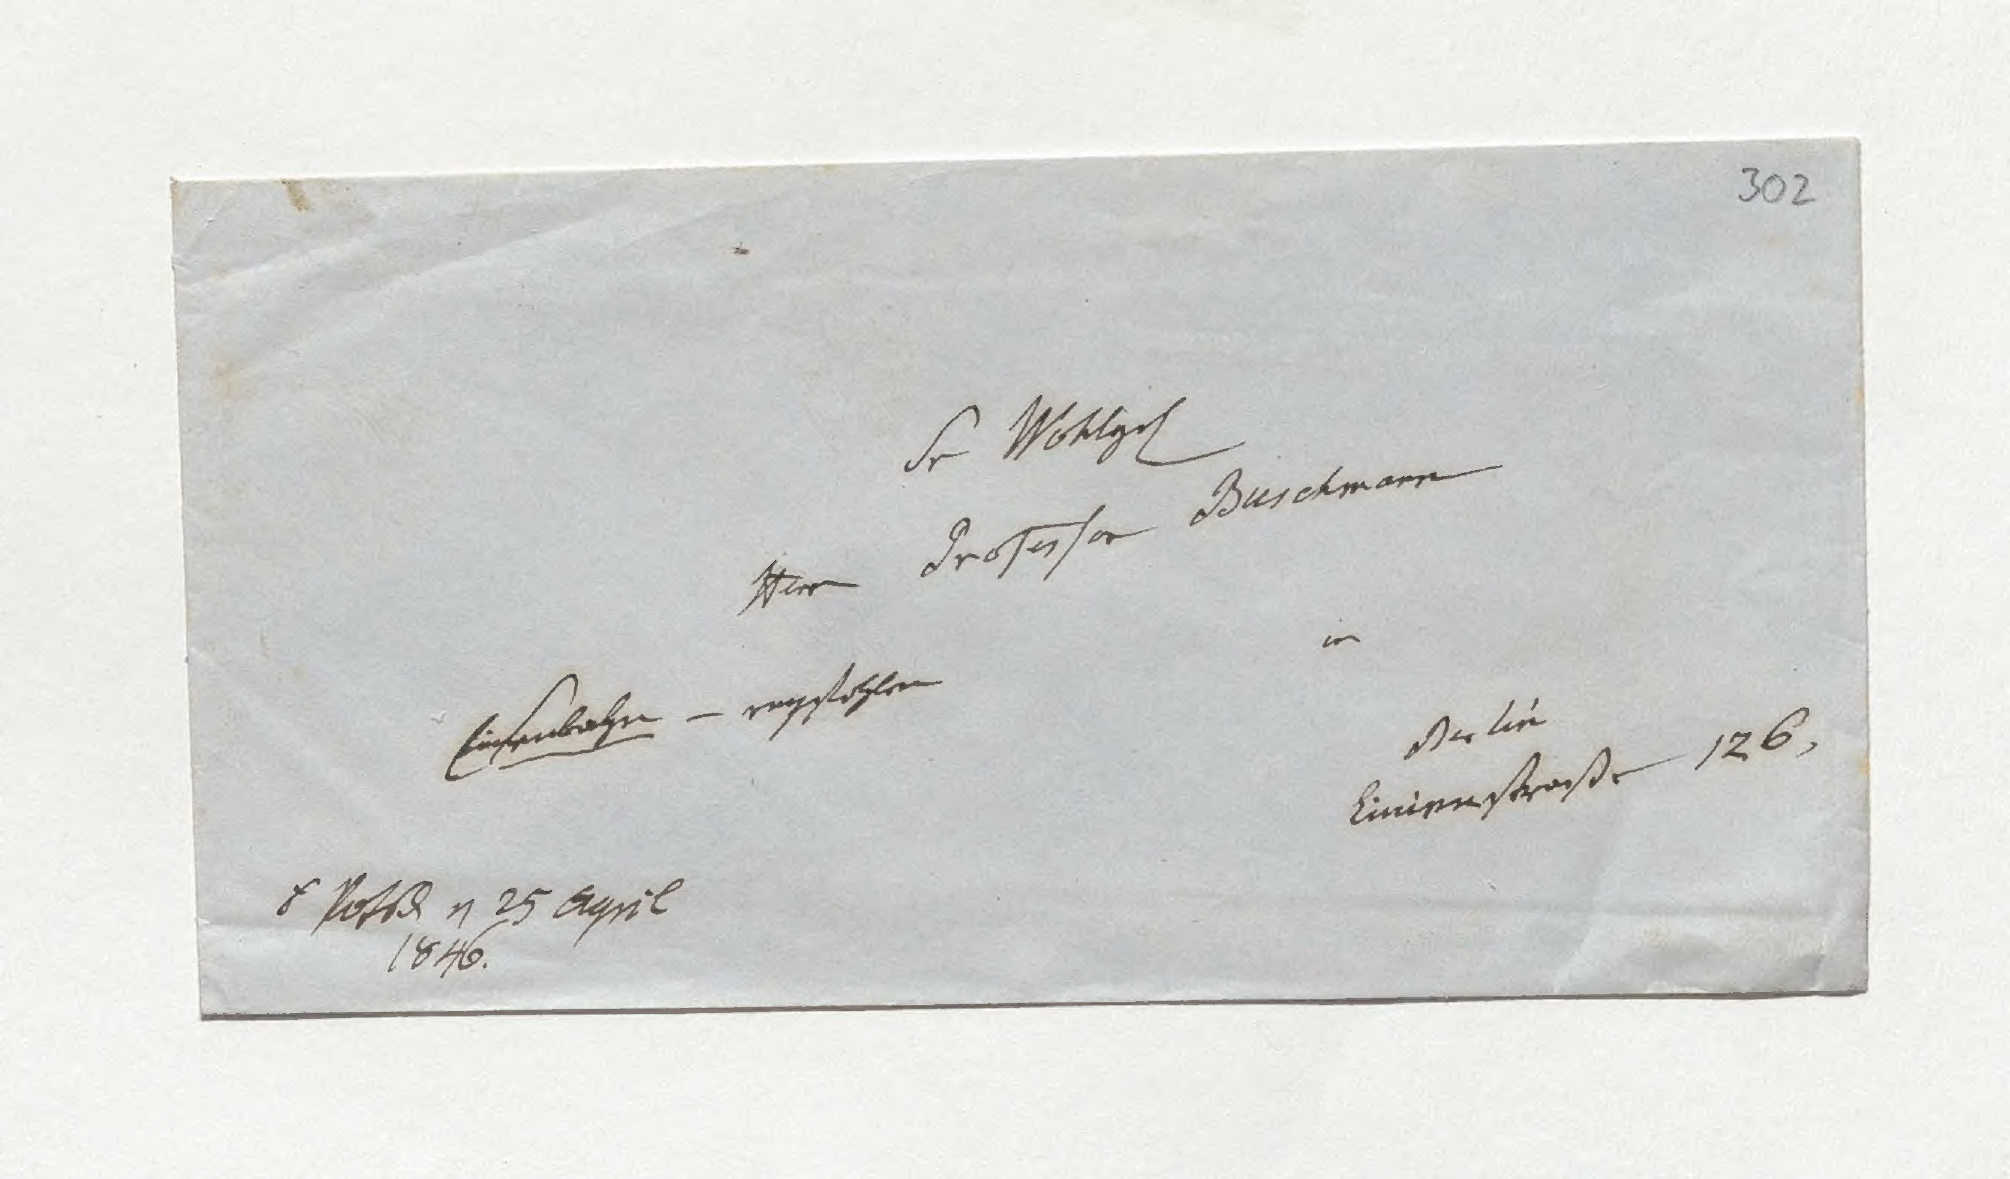 302
Sr Wohlgeb
Herrn Professor Buschmann
in
Eisenbahn – empfohlen
Berlin
Linienstraße 126,
Potsd 25 April
1846.